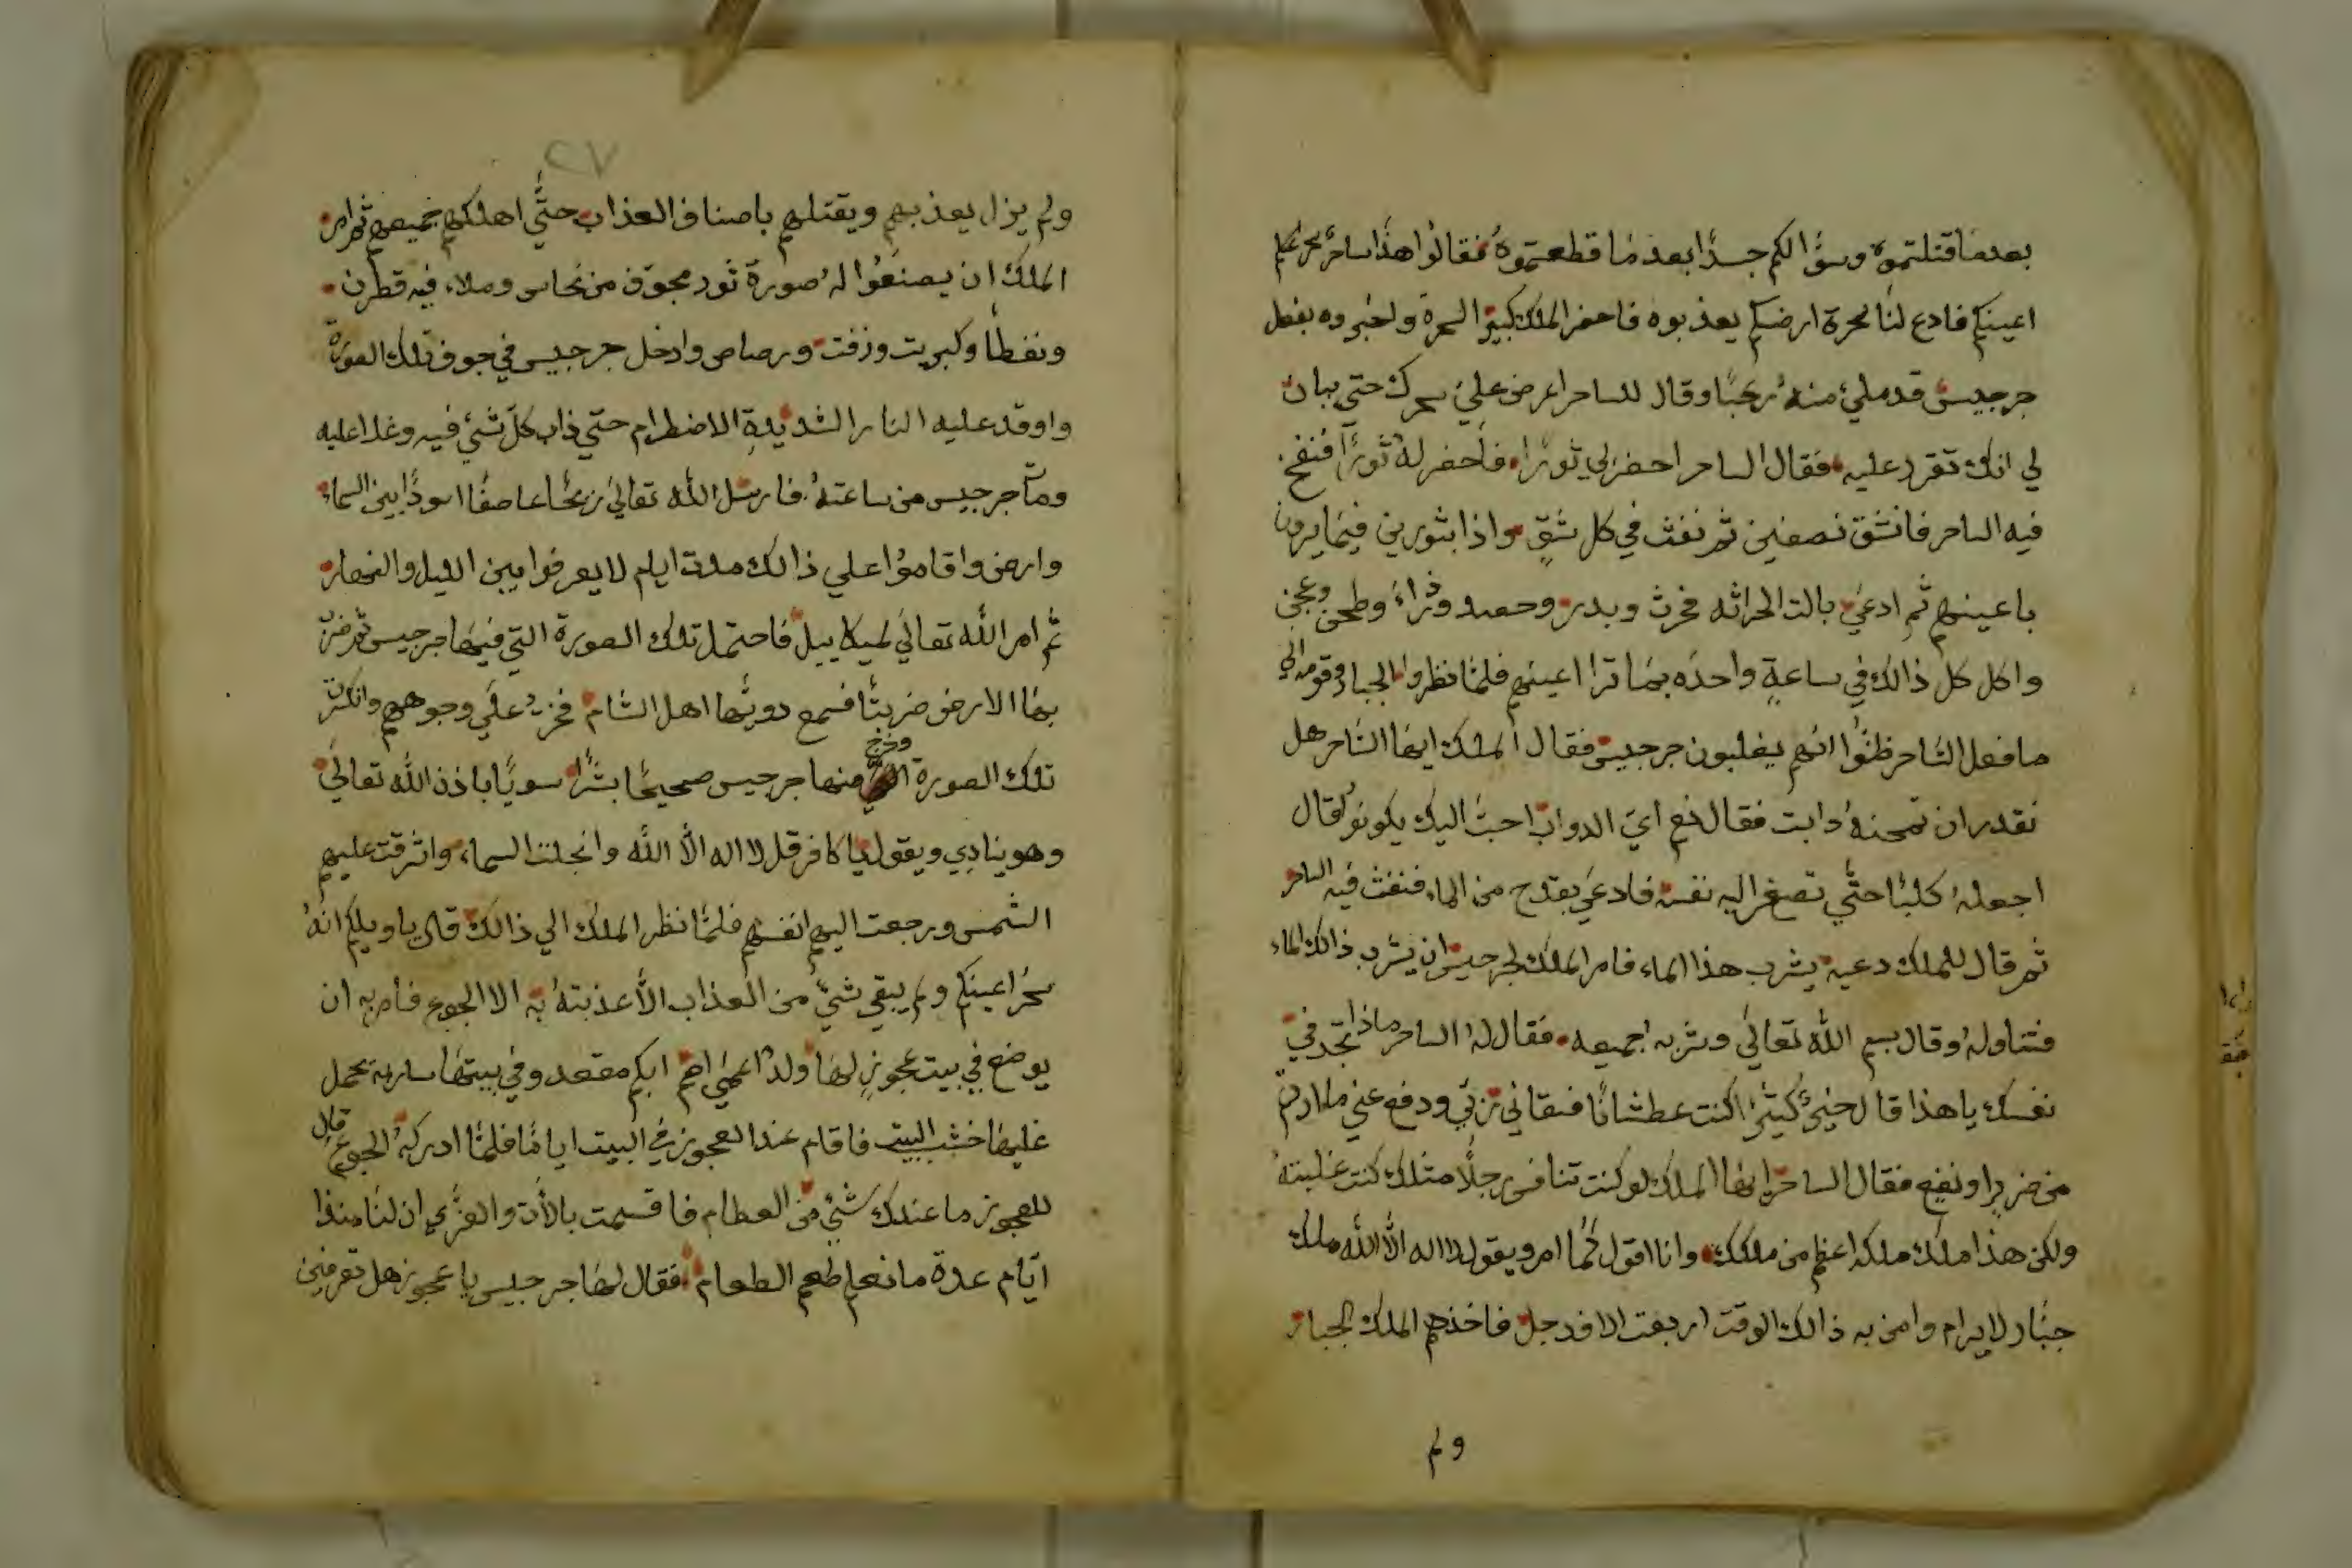 بعدما قتلتموه وسوٌالكم جسدًا بعد ما قطعتموهُ فقالوا هذا ساحرٌ سحر عليكم
اعينكم فادع لنا سحرة ارضكم يعذبوه فاحضر الملك كبير السحرة واخبروه بفعل
جرجيس قد ملئ منهُ رعبًا وقال للساحر اعرض عليَ سحرك حتي يبان
لي انك تقدر عليه فقال الساحر احضر لي ثورًا فاحضر لهُ ثورًا فنفخ
فيه الساحر فانشق نصفين ثم نفث في كل شقٍ واذا بثورين فيما يرون
باعينهم ثم ادعيَ بالت الحراثه فحرث وبدر وحصد وذراءَ وطحن وعجن
واكل كل ذالك في ساعةٍ واحده بما ترا اعينهم فلما نظروا الجبار وقومه الي
ما فعل الساحر ظنوُا انهم يغلبون جرجيس فقال الملك ايها الساحر هل
تقدر ان تمحنهُ دابت فقال نعم ايَ الدواب احبَ اليك يكونو قال
اجعلهُ كلبًا حتَي تصغر اليه نفسه فادعيَ بقدح من الماء فنفث فيه الساحر
ثم قال للملك دعيه يشرب هذا الماء فامر الملك لجرجيس ان يشرب ذالك الماء
فتناولهُ وقال بسم الله تعالي وشربه جميعه فقال لهُ الساحر ماذا تجد في
نفسك يا هذا قال خيرٌ كثيرًا كنت عطشانًا فسقاني ربي ودفع عني ما اردتم
من ضررٍ او نفع فقال الساحر ايها الملك لو كنت تنافس رجلًا مثلك كنت غلبتهُ
ولكن هذا ملك ملكه اعظم من ملكك وانا اقول كما امر ويقول لا اله الا الله ملك
جبار لا يرام وامن به ذالك الوقت اربعت الاف رجل فاخذهم الملك الجبار
ولم
٢٧
ولم يزل يعذبهم ويقتلهم باصناف العذاب حتَي اهلكهم جميعهم ثم امر
الملك ان يصنعوُا لهُ صورة ثور مجوف من نحاس وملاء فيه قطرن
ونفطًا وكبريت وزفت ورصاص وادخل جرجيس في جوف تلك الصورة
واوقد عليه النار الشديدةِ الاضطرام حتي ذاب كلَ شئ فيه وغدا عليه
ومات جرجيس من ساعتهُ فارسل الله تعالي ريحًا عاصفًا اسودًا بين السماء
وارض واقاموُا علي ذالك مدت ايام لا يعرفوا بين الليل والنهار
ثم امر الله تعالي لميكاييل فاحتمل تلك الصورة التي فيها جرجيس ثم ضرب
بها الارض ضربتًا فسمع دويها اهل الشام فخرُ علي وجوههم وانكسرت
تلك الصورة وخرج منها جرجيس صحيحًا بشرًا سويًا باذن الله تعالي
وهو ينادِي ويقول يا كافر قل لا اله الا الله وانجلت السماء واشرقت عليهم
الشمس ورجعت اليهم انفسهم فلما نظر الملك الي ذالك قال يا ويلكم انهُ
سحر اعينكم ولم يبقي شئٌ من العذاب الا عذبتهُ به الا الجوع فامر به ان
يوضع في بيت عجوزٍ لها ولدًا اعمي اصم ابكم مقعد وفي بيتها ساريه تحمل
عليها خشب البيت فاقام عند العجوز في البيت ايامًا فلما ادركهُ الجوع قال
للعجوز ما عندك شئ من الطعام فاقسمت بالات والعزي ان لنا منذا
ايَام عدة ما نعلم طعم الطعام فقال لها جرجيس يا عجوز هل تعرفين